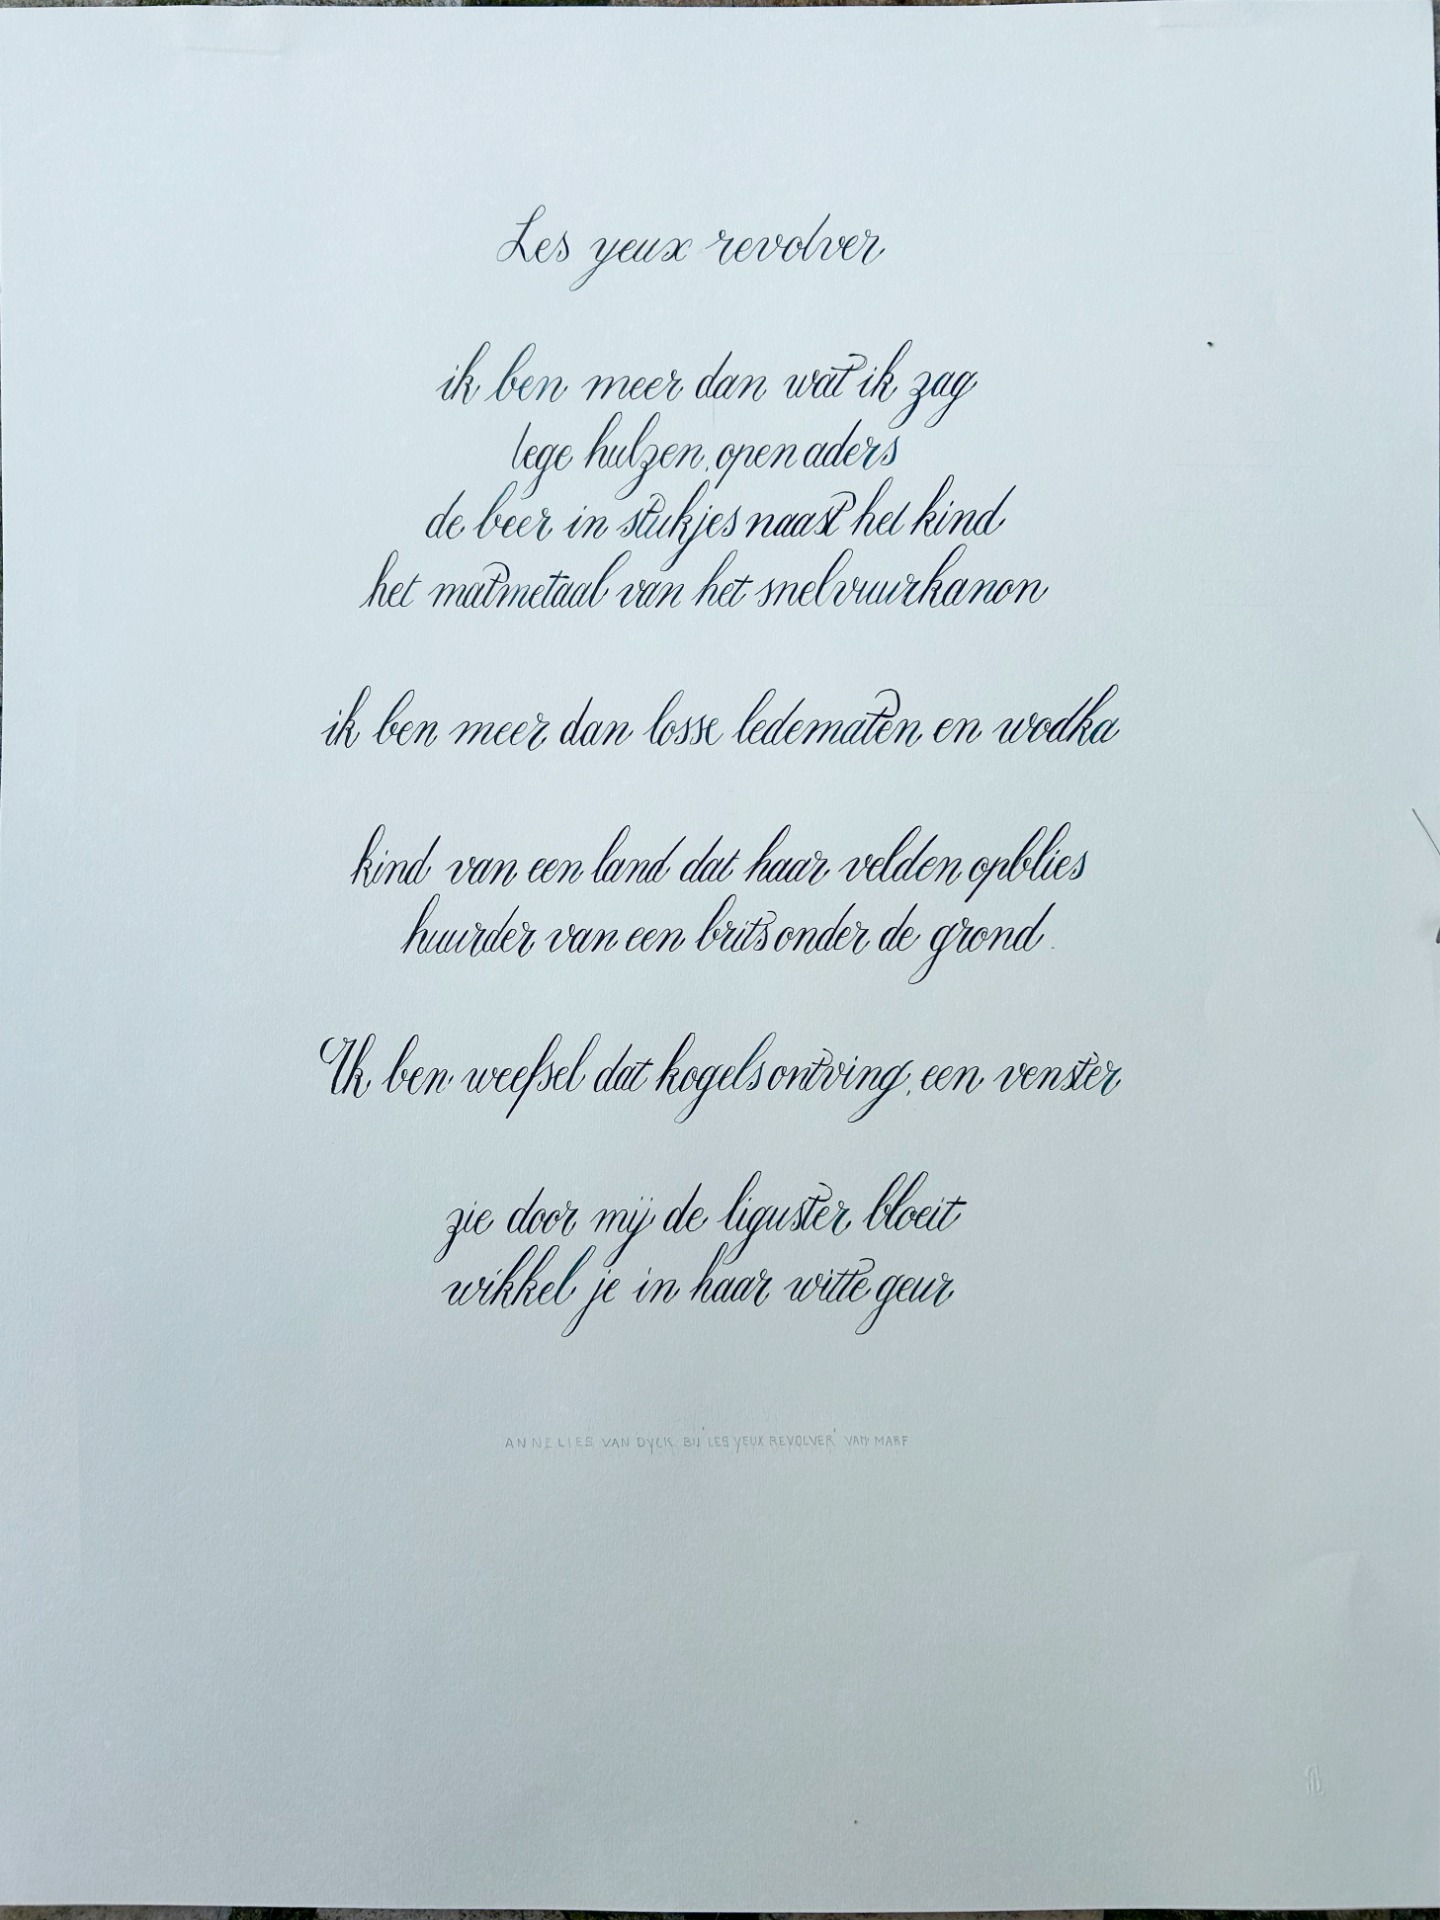 Les yeux revolver
ik ben meer dan wat ik zag
lege hulzen, open aders
de beer in stukjes naast het kind
het matmetaal van het snelvuurkanon
ik ben meer dan losse ledematen en wodka
kind van een land dat haar velden opblies
huurder van een brits onder de grond
Ik ben weefsel dat kogels ontving, een venster
zie door mij de liguster bloeit
wikkel je in haar witte geur
ANNELIES VAN DYCK BIJ 'LES YEUX REVOLVER' VAN MARF